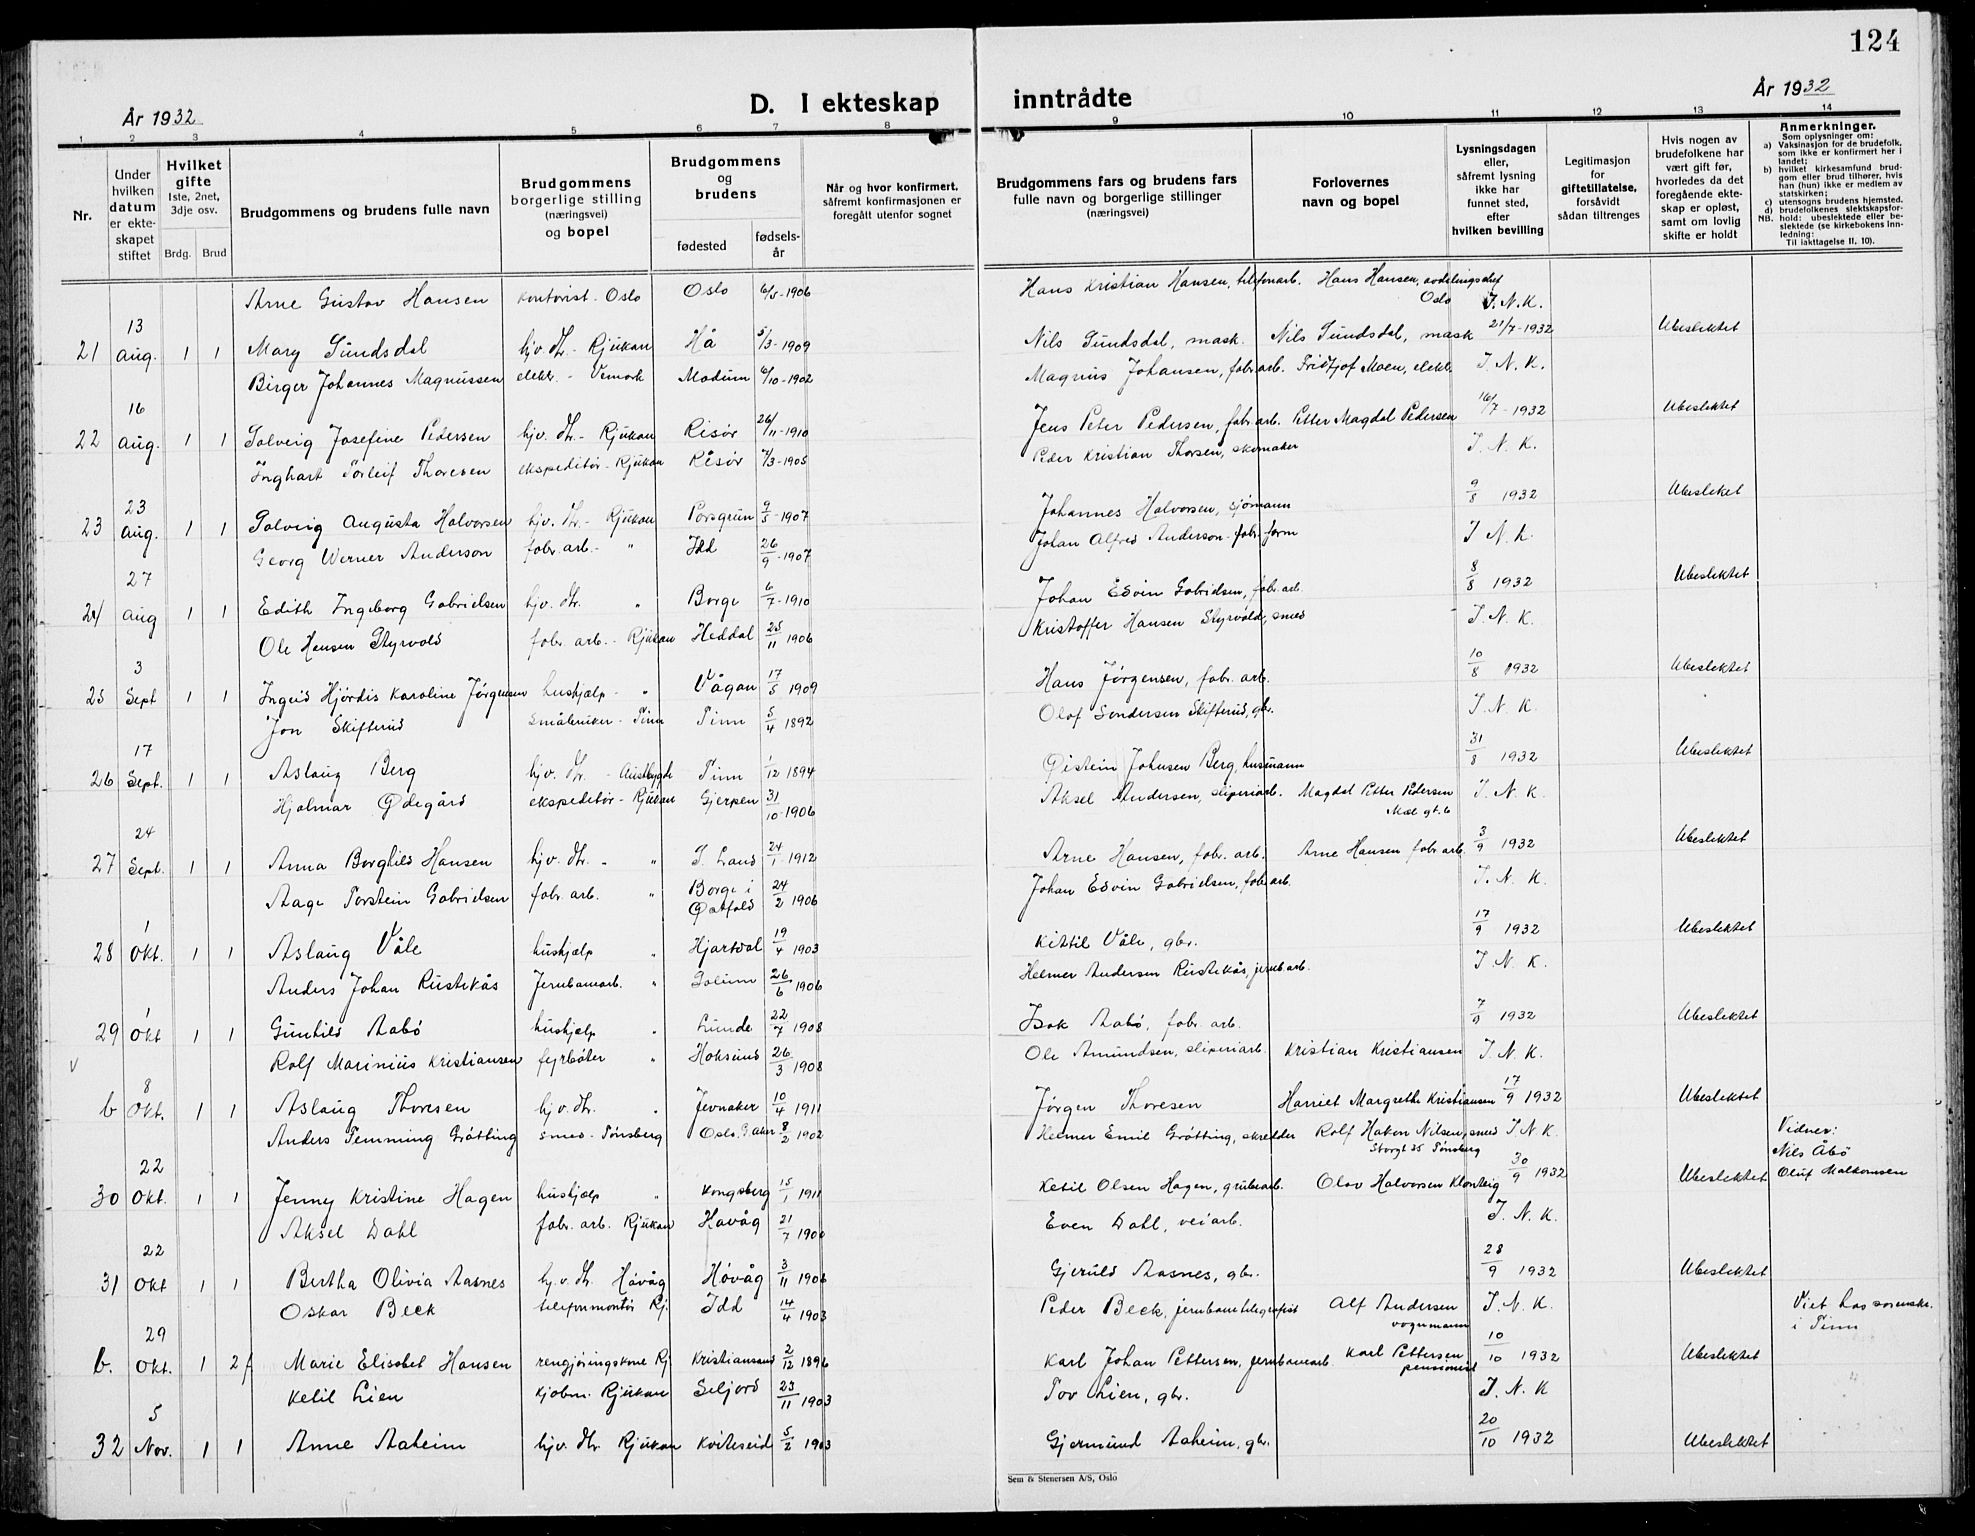 124
År 1932
D. I ekteskap inntrådte
År 1932
1 2 3 4 5 6 7 8 9 10 11 12 13 14
Nr.
Under hvilken datum er ekteskapet stiftet
Hvilket gifte
1ste, 2net, 3dje osv.
Brdg. Brud
Brudgommens og brudens fulle navn
Brudgommens borgerlige stilling (næringsvei) og bopel
Brudgommens og brudens
fødested
fødselsår
Når og hvor konfirmert, såfremt konfirmasjonen er foregått utenfor sognet
Brudgommens fars og brudens fars fulle navn og borgerlige stillinger (næringsvei)
Forlovernes navn og bopel
Lysningsdagen eller, såfremt lysning ikke har funnet sted, efter hvilken bevilling
Legitimasjon for giftetillatelse, forsåvidt sådan tiltrenges
Hvis nogen av brudefolkene har vært gift før, hvorledes da det foregående ekteskap er opløst, samt om lovlig skifte er holdt
Anmerkninger.
Som oplysninger om:
a) Vaksinasjon for de brudefolk, som ikke er konfirmert her i landet;
b) hvilket kirkesamfund brudgom eller brud tilhører, hvis han (hun) ikke er medlem av statskirken;
c) utensogns brudens hjemsted.
d) brudefolkenes slektskapsforhold: ubeslektede eller beslektede (se kirkebokens innledning:
NB. Til iakttagelse II, 10).
Arne Gustav Hansen kontorist - Oslo Oslo 6/5-1906 Hans Kristian Hansen, telefonarb. Hans Hansen, avdelingschef Oslo I. N. K.
21 13 Aug. 1 1 Mary Sundsdal hjv. dtr. - Rjukan Hå 5/3-1909 Nils Sundsdal, mask. Nils Sundsdal, mask 21/7-1932 Ubeslektet
Birger Johannes Magnussen elektr. - Vemork Modum 6/10-1902 Magnus Johansen, fabr.arb. Fridtjof Moen, elektr. I. N. K.
22 16 Aug. 1 1 Solveig Josefine Pedersen hjv. dtr. - Rjukan Risør 26/11-1910 Jens Peter Pedersen, fabr.arb. Petter Magdal Pedersen 16/7-1932 Ubeslektet
Inghart Torleif Thoresen ekspeditør - Rjukan Risør 7/3-1905 Peder Kristian Thorsen, skomaker I. N. K.
23 23 Aug. 1 1 Solveig Augusta Halvorsen hjv. dtr. - Rjukan Porsgrun 9/5-1907 Johannes Halvorsen, sjømann 9/8 1932 Ubeslektet
Georg Werner Anderson fabr. arb. - " Idd 26/9-1907 Johan Alfred Anderson - fabr. form I N. K.
24 27 Aug 1 1 Edith Ingeborg Gabrielsen hjv. dtr. " Borge 6/7-1910 Johan Edvin Gabrielsen, fabr. arb. 8/8 1932 Ubeslektet
Ole Hansen Styrvold fabr. arb. - Rjukan Heddal 25/11 1906 Kristoffer Hansen Styrvold, smed I. N. K.
25 3 Sept 1 1 Ingrid Hjördis Karoline Jørgensen hushjelp - " Vågan 17/5 1909 Hans Jørgensen, fabr. arb. 10/8 1932 Ubeslektet
Jon Skifterud småbruker - Tinn Tinn 5/4 1892 Olaf Sondersen Skifterud, gbr. I. N. K.
26 17 Sept. 1 1 Aslaug Berg hjv. dtr. - Austbygde Tinn 1/12 1894 Øistein Johnsen Berg, husmann 31/8 1932 Ubeslektet
Hjalmar Ødegård ekspeditør - Rjukan Gjerpen 31/10-1906 Aksel Andersen, sliperiarb. Magdal Petter Pedersen Mæl gt. 6 I. N. K.
27 24 Sept. 1 1 Anna Borghild Hansen hjv. dtr. - " S. Land 24/1 1912 Arne Hansen, fabr. arb. Arne Hansen fabr arb. 3/9 1932 Ubeslektet
Aage Torstein Gabrielsen fabr. arb. " Borge i Østfold 24/2 1906 Johan Edvin Gabrielsen, fabr arb. I. N. K.
28 1 Okt. 1 1 Aslaug Våle hushjelp " Hjartdal 19/4 1903 Kittil Våle, gbr. 17/9 1932 Ubeslektet
Anders Johan Rustekås Jernbanearb. " Solum 26/6 1906 Helmer Andersen Rustekås, jernb.arb. I. N. K.
29 1 Okt 1 1 Gunhild Aabö hushjelp " Lunde 22/7 1908 Isak Aabö, fabr. arb. 7/9 1932 Ubeslektet
v Rolf Marinius Kristiansen fyrbøter " Hoksund 26/3 1908 Ole Amundsen, sliperiarb. Kristian Kristiansen I. N. K.
b 8 Okt. 1 1 Aslaug Thoresen hjv. dtr. " Jevnaker 10/4 1911 Jørgen Thoresen Harriet Margrethe Kristiansen 17/9 1932 Ubeslektet
Anders Temming Grötting smed - Tønsberg Oslo, G. Aker 8/2 1902 Helmer Emil Grötting, skredder Rolf Hakon Nilsen, smed Storgt 35 Tønsberg I. N. K. Vidner: Nils Åbö
30 22 Okt. 1 1 Jenny Kristine Hagen hushjelp " Kongsberg 15/1 1911 Ketil Olsen Hagen, grubearb. Olav Halvorsen Klonteig 30/9 1932 Ubeslektet Oluf Malkomsen
Aksel Dahl fabr. arb. Rjukan Havåg 21/7 1900 Even Dahl, veiarb. I. N. K.
31 22 Okt 1 1 Bertha Olivia Aasnes hj.v. dtr. Høvåg Høvåg 3/11 1906 Gjeruld Aasnes, gbr. 28/9 1932 Ubeslektet
Oskar Beck telefonmontør Rj. Idd 14/4 1903 Peder Beck, jernbanetelegrafist Alf Andersen vognmann I. N. K. Viet hos sorenskr. i Tinn
b. 29 Okt. 1 2 f Marie Elisabet Hansen rengjøringskone Rj Kristiansand 2/12 1896 Karl Johan Pettersen, jernbanearb. Karl Pettersen pensionist 10/10 1932 Ubeslektet
Ketil Lien kjøbm. Rjukan Seljord 23/11 1903 Tov Lien, gbr. I. N. K
32 5 Nov. 1 1 Anne Aaheim hjv. dtr Rjukan Kviteseid 5/2 1903 Gjermund Aaheim, gbr. 20/10 1932 Ubeslektet
Sem & Stenersen A/S, Oslo